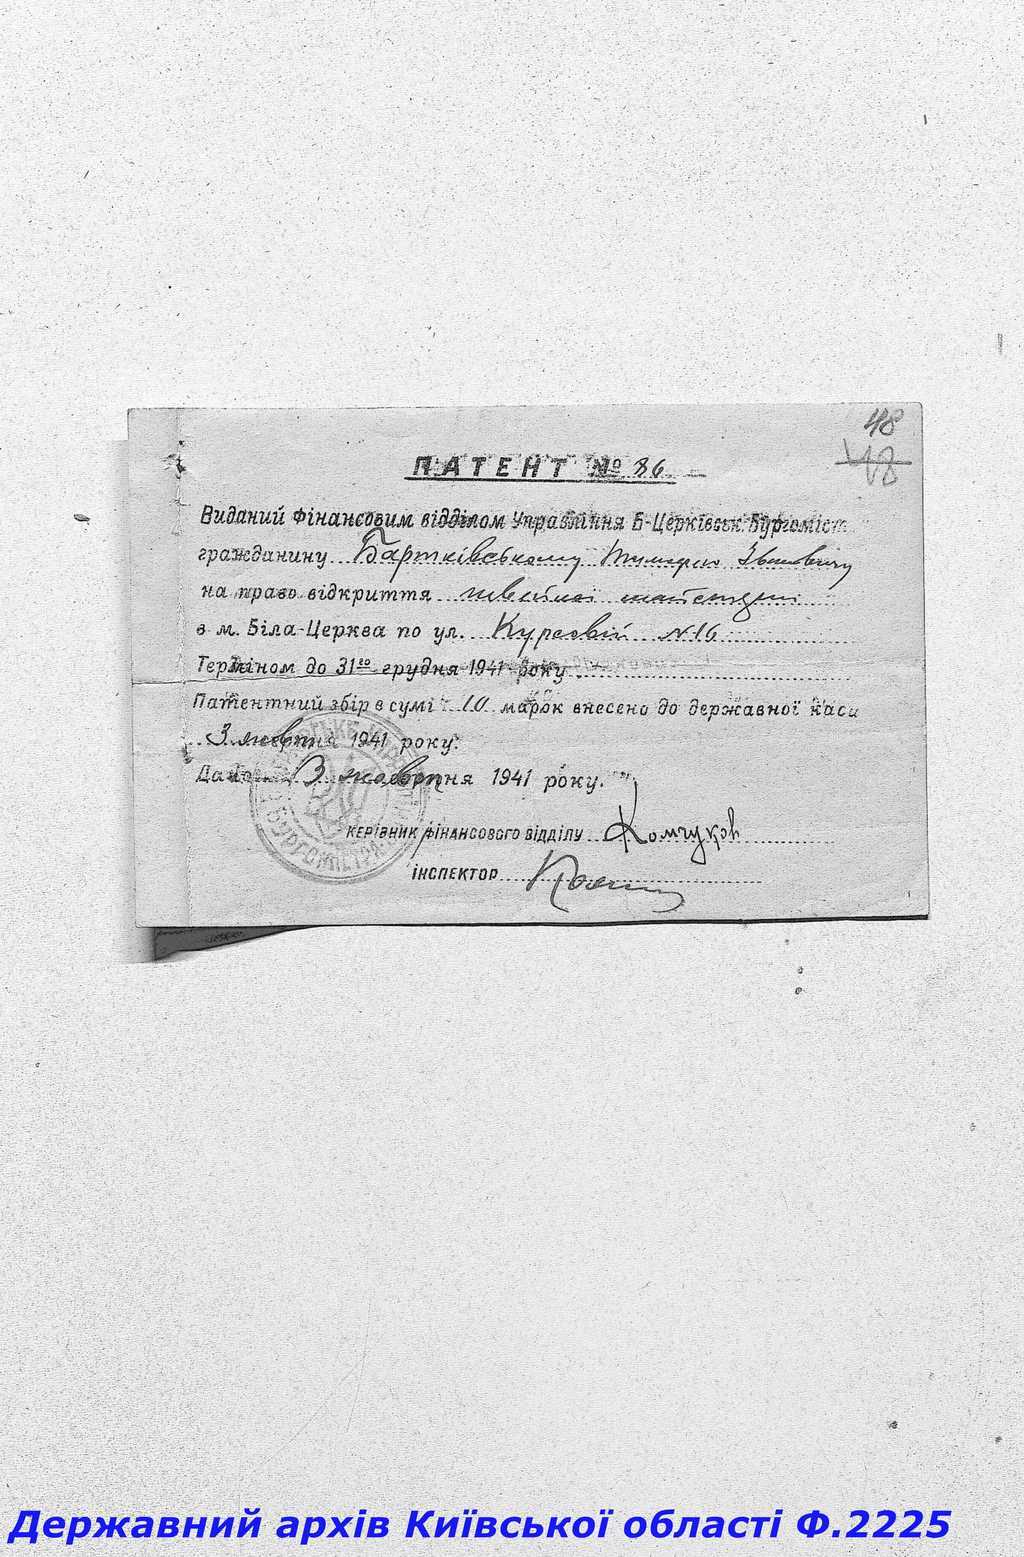 48
48
ПАТЕНТ № 86
Виданий Фінансовим відділом Управління Б-Церківськ. Бургоміст.
гражданину Бартківському Івановичу
на право відкриття швейної
в м. Біла-Церква по ул. N 16
Терміном до 31го грудня 1941 року
Патентний збір в сумі 10 марок внесено до державної каси
3 жовтня 1941 року.
Дано 3 жовтня 1941 року.
КЕРІВНИК ФІНАНСОВОГО ВІДДІЛУ Комчуков
ІНСПЕКТОР
Державний архів Київської області Ф.2225